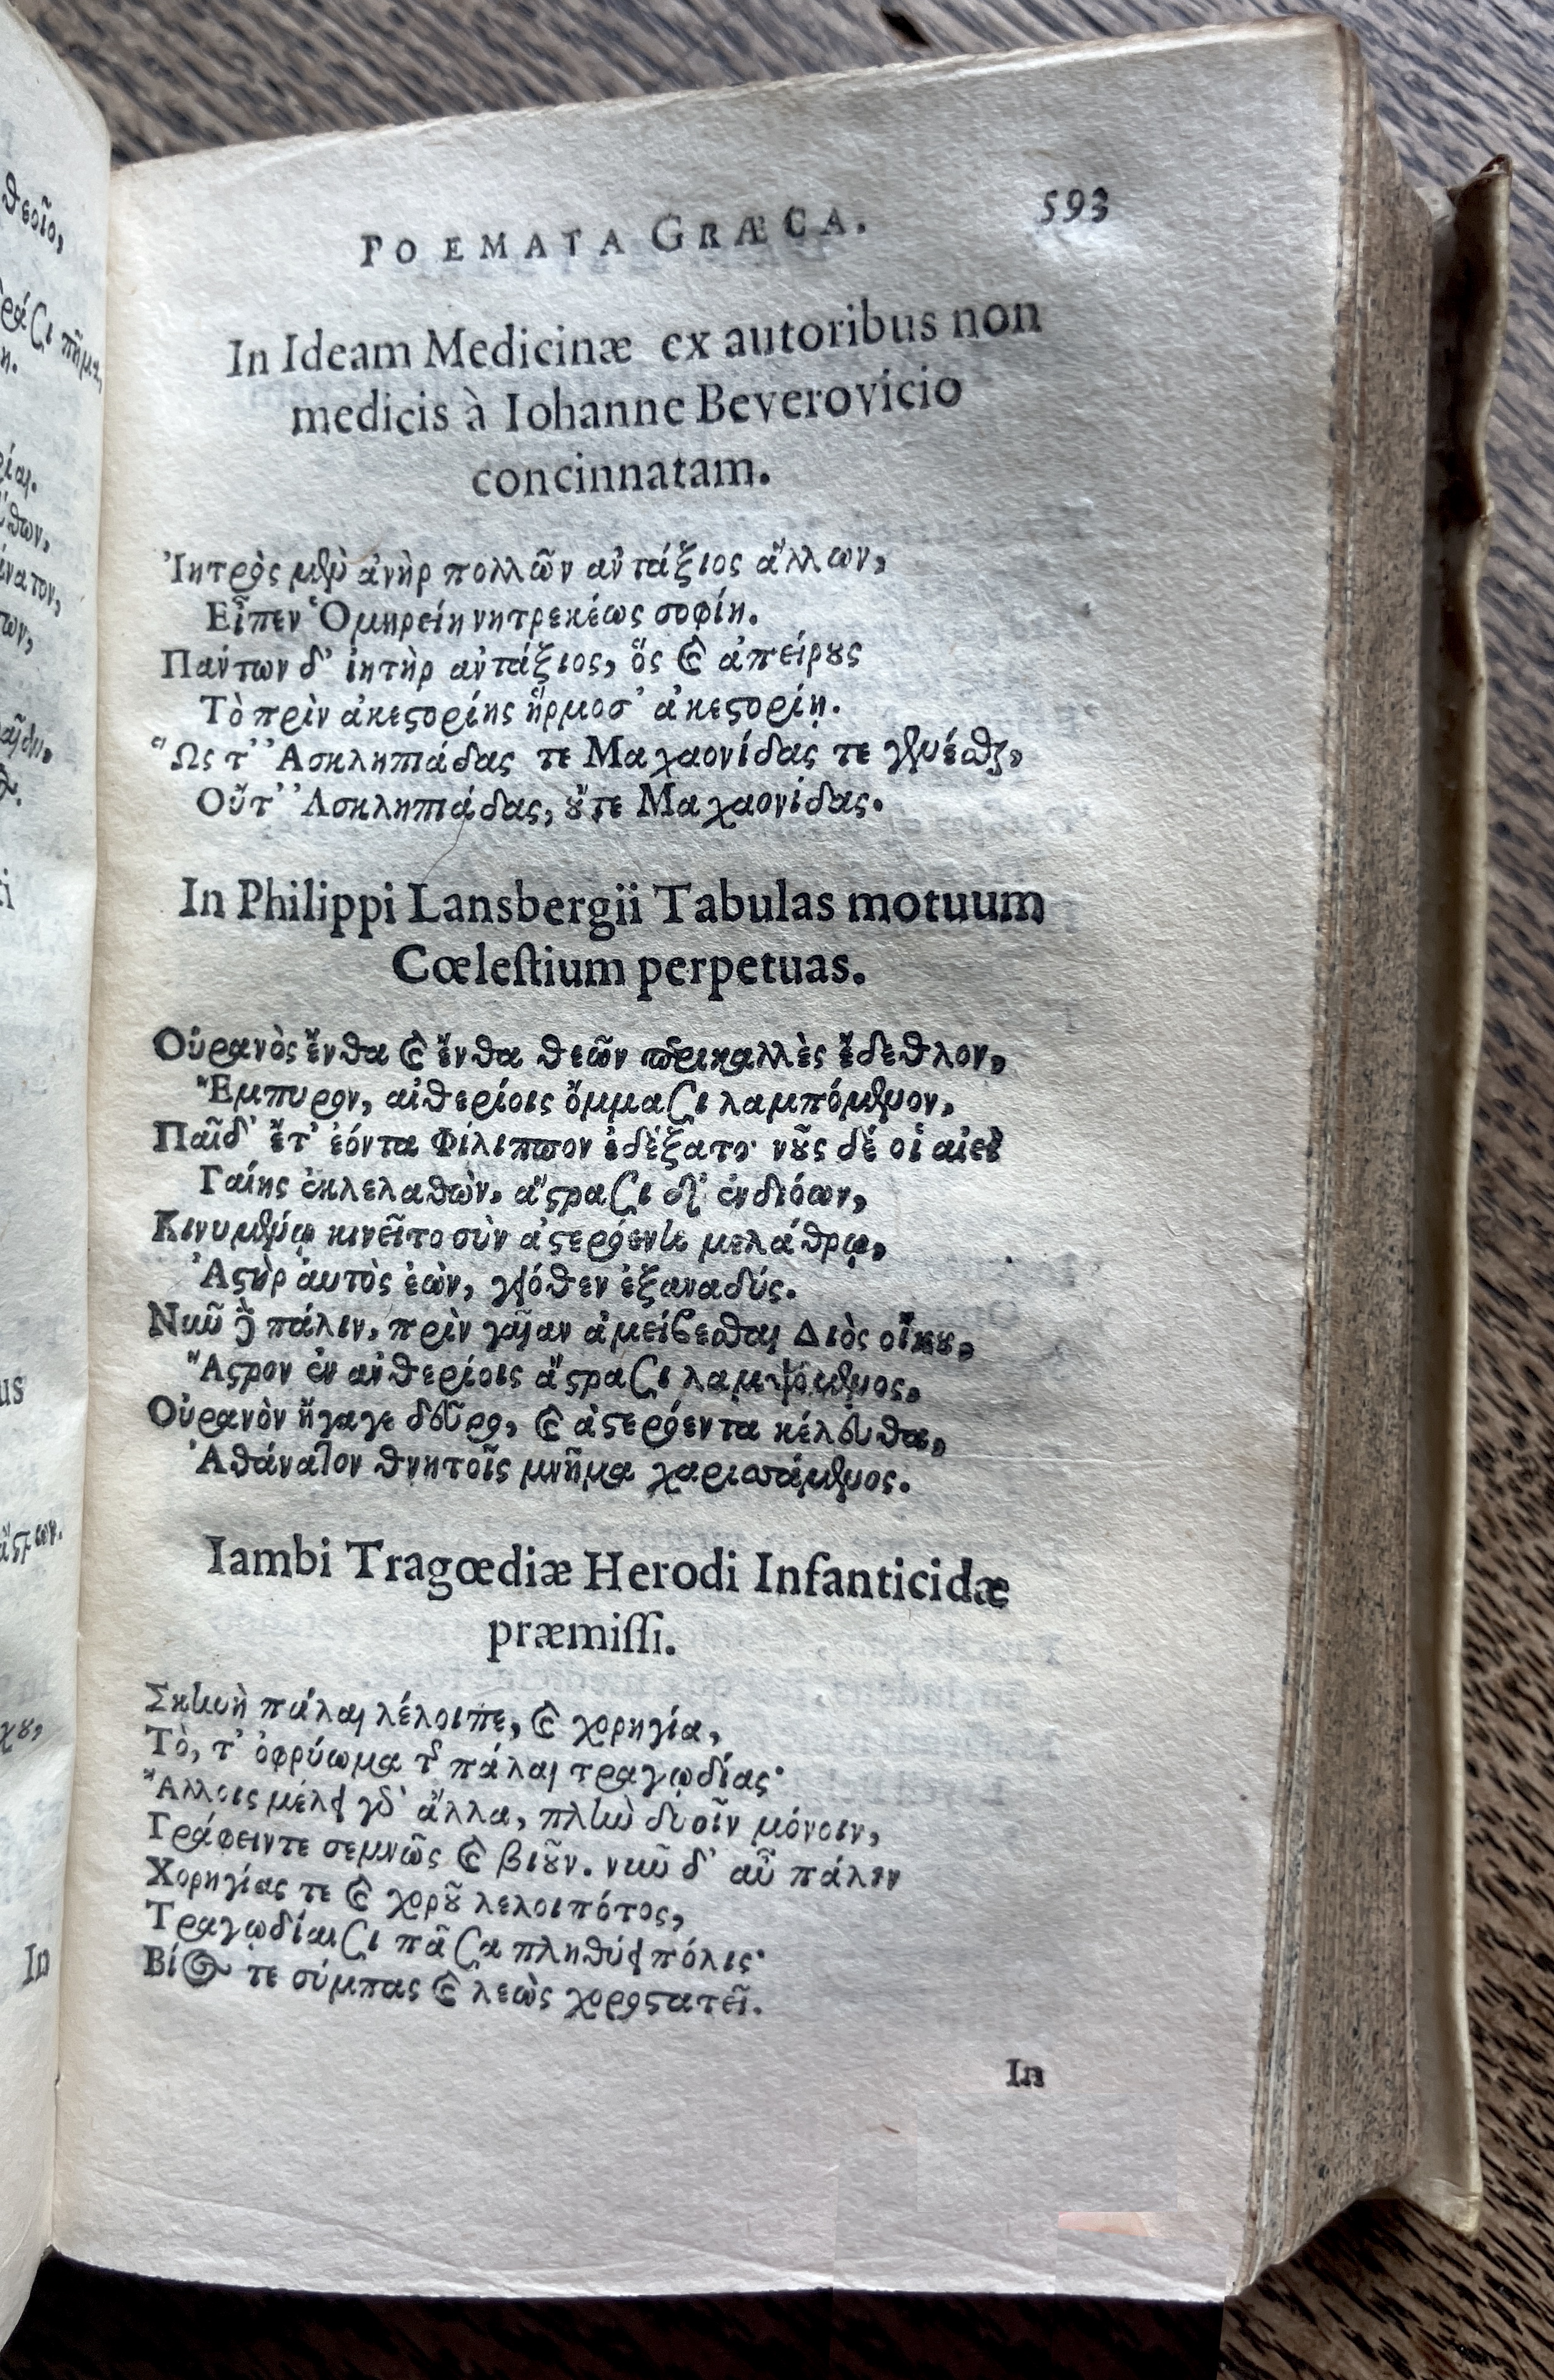 POEMATA GRÆCA. 593
In Ideam Medicinæ ex autoribus non
medicis à Iohanne Beverovicio
concinnatam.
Ἰητρὸς μὲν ἀνὴρ πολλῶν ἀντάξιος ἄλλων,
Εἶπεν Ὁμηρείη νητρεκέως σοφίη.
Πάντων δ' ἰητὴρ ἀντάξιος, ὅς καὶ ἀπείρȣς
Τὸ πρὶν ἀκεςορίης ἥρμοσ' ἀκεςορίῃ.
Ὥς τ' Ἀσκληπιάδας τε Μαχαονίδας τε γενέσθαι,
Οὔτ' Ἀσκληπιάδας, ȣ̓́τε Μαχαονίδας.
In Philippi Lansbergii Tabulas motuum
Cœleſtium perpetuas.
Οὐρανὸς ἔνθα καὶ ἔνθα θεῶν περικαλλὲς ἔδεθλον,
Ἔμπυρον, αἰθερίοις ὄμμασι λαμπόμενον,
Παῖδ' ἔτ' ἐόντα Φίλιππον ἐδέξατο· νȣ͂ς δέ οἱ αἰεὶ
Γαίης ἐκλελαθὼν, ἄςρασι δ' ἐνδιόων,
Κινυμένῳ κινεῖτο σὺν ἀςερόεντι μελάθρῳ,
Ἀςὴρ ἀυτὸς ἐὼν, γῆθεν ἐξαναδύς.
Νῦν δὲ πάλιν, πρὶν γαῖαν ἀμείβεσθαι Διὸς οἴκȣ,
Ἄςρον ἐν αἰθερίοις ἄςρασι λαμψόμενος,
Οὐρανὸν ἤγαγε δεῦρο, καὶ ἀςερόεντα κέλευθα,
Ἀθάνατον θνητοῖς μνῆμα χαρισσάμενος.
Iambi Tragœdiæ Herodi Infanticidæ
præmiſſi.
Σκηνὴ πάλαι λέλοιπε, καὶ χορηγία,
Τὸ, τ' ὀφρύωμα τῆς πάλαι τραγῳδίας·
Ἄλλοις μέλει γδ' ἄλλα, πλὴν δυοῖν μόνοιν,
Γράφειν τε σεμνῶς καὶ βιȣ͂ν. νῦν δ' αὖ πάλιν
Χορηγίας τε καὶ χορȣ͂ λελοιπότος,
Τραγῳδίαισι πᾶσα πληθύει πόλις·
Βίος τε σύμπας καὶ λεὼς χοροςατεῖ.
In